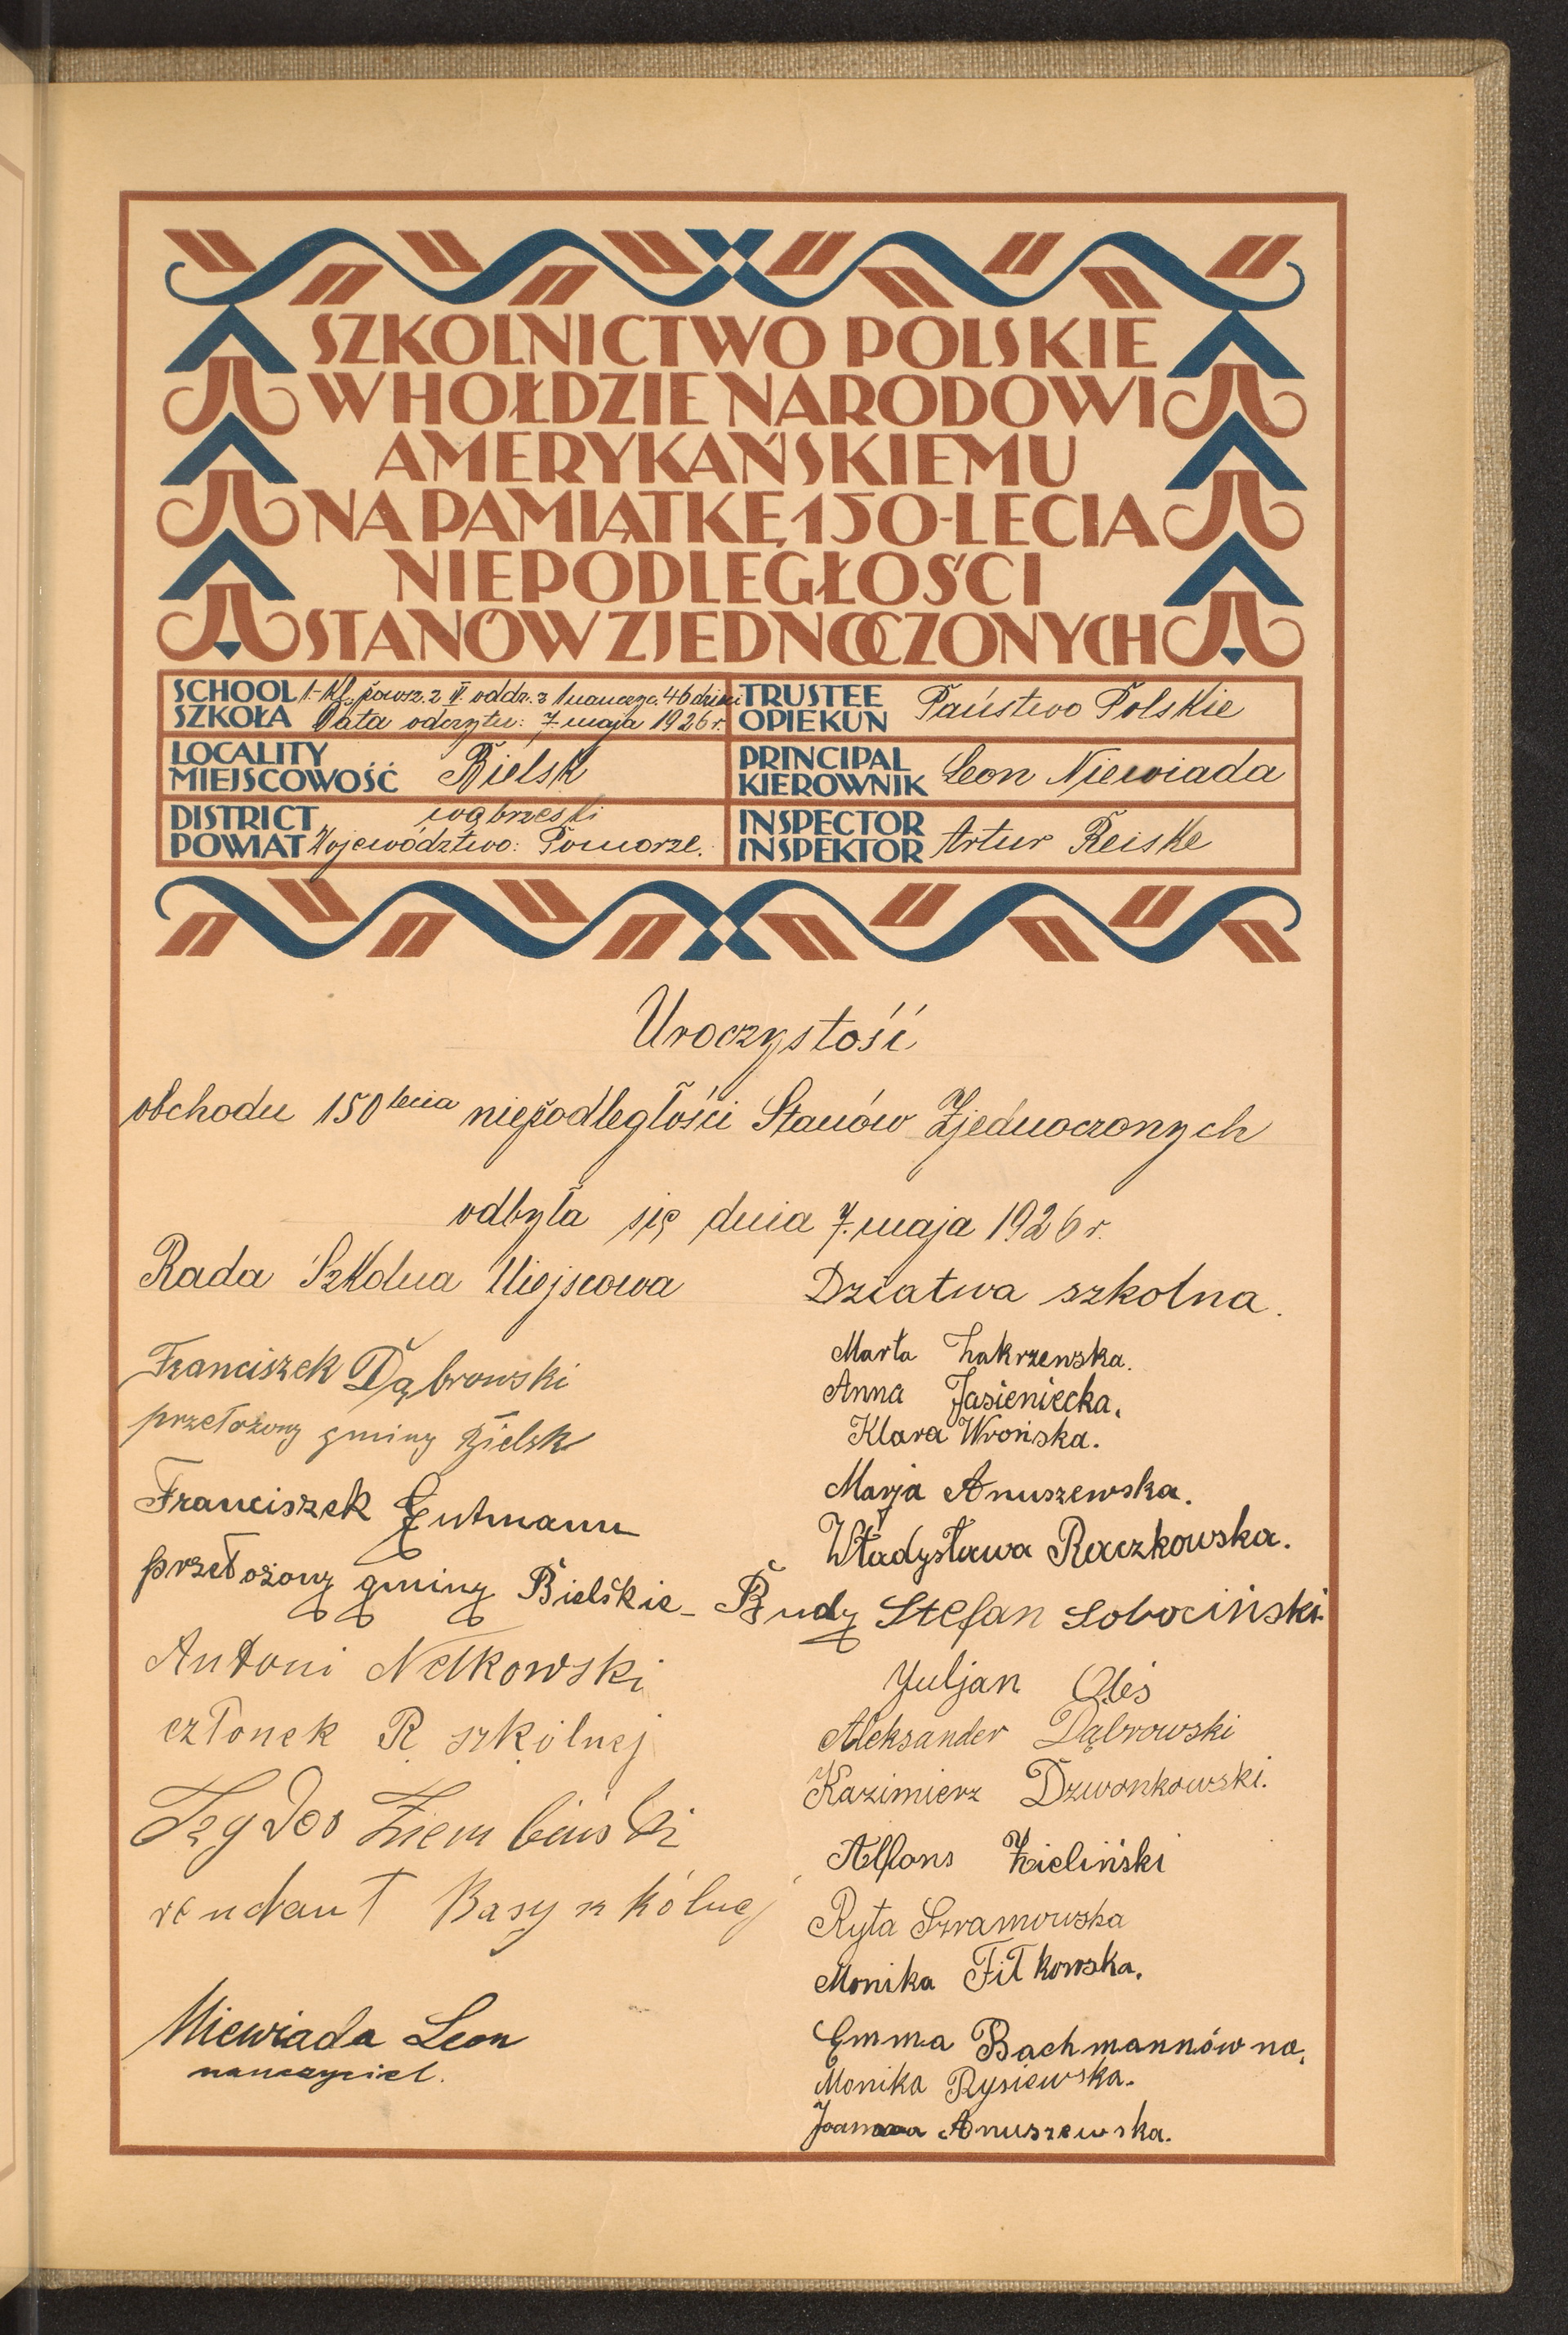 SZKOLNICTWO POLSKIE
W HOŁDZIE NARODOWI
AMERYKAŃSKIEMU
NA PAMIĄTKĘ 150-LECIA
NIEPODLEGŁOŚCI
STANÓW ZJEDNOCZONYCH
SCHOOL 1.-kl. powsz. z IV oddz. z 1 naucz. 46 dzieci
SZKOŁA Data odczytu: 7. maja 1926 r.
TRUSTEE
OPIEKUN Państwo Polskie
LOCALITY
MIEJSCOWOŚĆ Bielsk
PRINCIPAL
KIEROWNIK Leon Niewiada
DISTRICT wąbrzeski
POWIAT Województwo: Pomorze.
INSPECTOR
INSPEKTOR Artur Reiske
Uroczystość
obchodu 150 lecia niepodległości Stanów Zjednoczonych
odbyła się dnia 7. maja 1926 r.
Rada Szkolna Miejscowa
Franciszek Dąbrowski
przełożony gminy Bielsk
Franciszek Gutmann
przełożony gminy Bielskie-Budy
Antoni Nelkowski
członek R. szkolnej
Ziembiński
rendant Kasy szkólnej
Niewiada Leon
nauczyciel.
Dziatwa szkolna.
Marta Zakrzewska.
Anna Jasieniecka.
Klara Wrońska.
Marja Anuszewska.
Władysława Raczkowska.
Stefan Sobociński
Juljan Oleś
Aleksander Dąbrowski
Kazimierz Dzwonkowski.
Alfons Zieliński
Ryta Szramowska
Monika Fitkowska.
Emma Bachmannówna.
Monika Rysiewska.
Joanna Anuszewska.